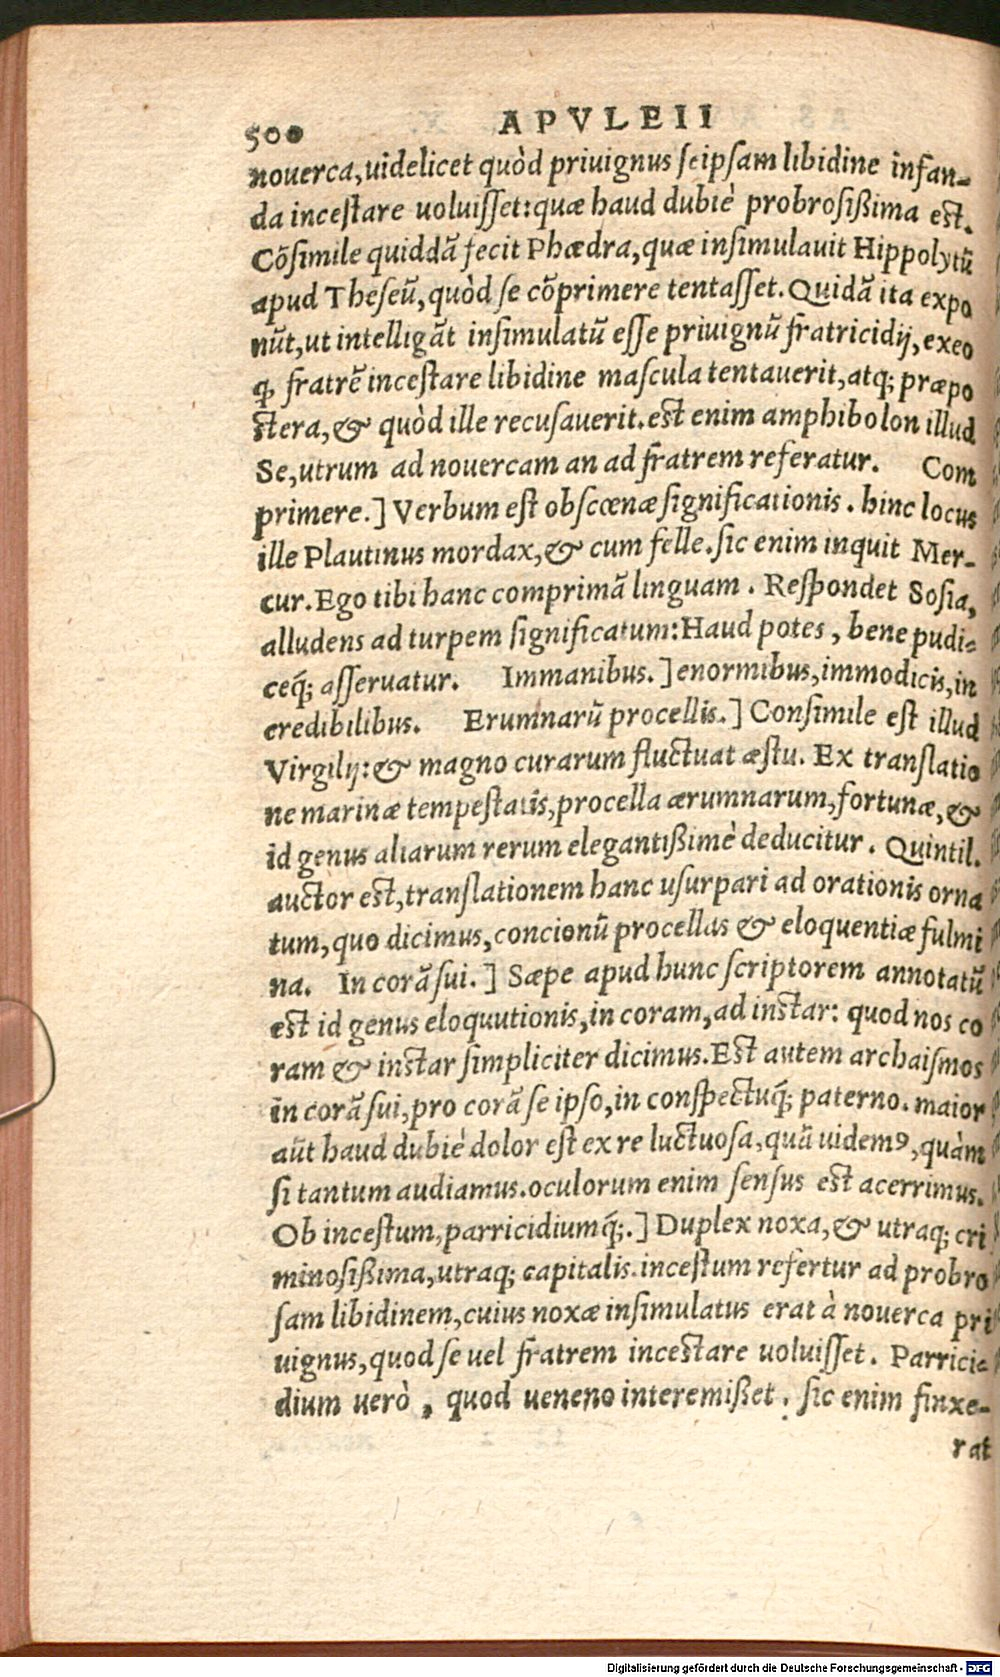 500 APVLEII
nouerca,uidelicet quòd priuignus seipsam libidine infan-
da incestare uoluisset:quæ haud dubiè probrosißima est.
Cõsimile quiddã fecit Phædra,quæ insimulauit Hippolytũ
apud Theseũ,quòd se cõprimere tentasset.Quidã ita expo
nũt,ut intelligãt insimulatũ esse priuignũ fratricidij,exeo
q̃ fratrẽ incestare libidine mascula tentauerit,atq; præpo
stera,& quòd ille recusauerit.est enim amphibolon illud
Se,utrum ad nouercam an ad fratrem referatur. Com
primere.] Verbum est obscœnæ significationis. hinc locus
ille Plautinus mordax,& cum felle.sic enim inquit Mer-
cur.Ego tibi hanc comprimã linguam. Respondet Sosia,
alludens ad turpem significatum:Haud potes, bene pudi-
ceq́; asseruatur. Immanibus.] enormibus,immodicis,in
credibilibus. Erumnarũ procellis.] Consimile est illud
Virgilij:& magno curarum fluctuat æstu. Ex translatio
ne marinæ tempestatis,procella ærumnarum,fortunæ,&
id genus aliarum rerum elegantißimè deducitur. Quintil.
auctor est,translationem hanc usurpari ad orationis orna
tum,quo dicimus,concionũ procellas & eloquentiæ fulmi
na. In corã sui.] Sæpe apud hunc scriptorem annotatũ
est id genus eloquutionis,in coram,ad instar: quod nos co
ram & instar simpliciter dicimus.Est autem archaismos
in corã sui,pro corã se ipso,in conspectuq́; paterno.maior
aũt haud dubiè dolor est ex re luctuosa,quã uidemꝰ,quàm
si tantum audiamus.oculorum enim sensus est acerrimus.
Ob incestum,parricidiumq́;.] Duplex noxa,& utraq; cri
minosißima,utraq; capitalis.incestum refertur ad probro
sam libidinem,cuius noxæ insimulatus erat à nouerca pri
uignus,quod se uel fratrem incestare uoluisset. Parrici-
dium verò, quod ueneno interemißet. sic enim finxe-
rat
Digitalisierung gefördert durch die Deutsche Forschungsgemeinschaft - DFG